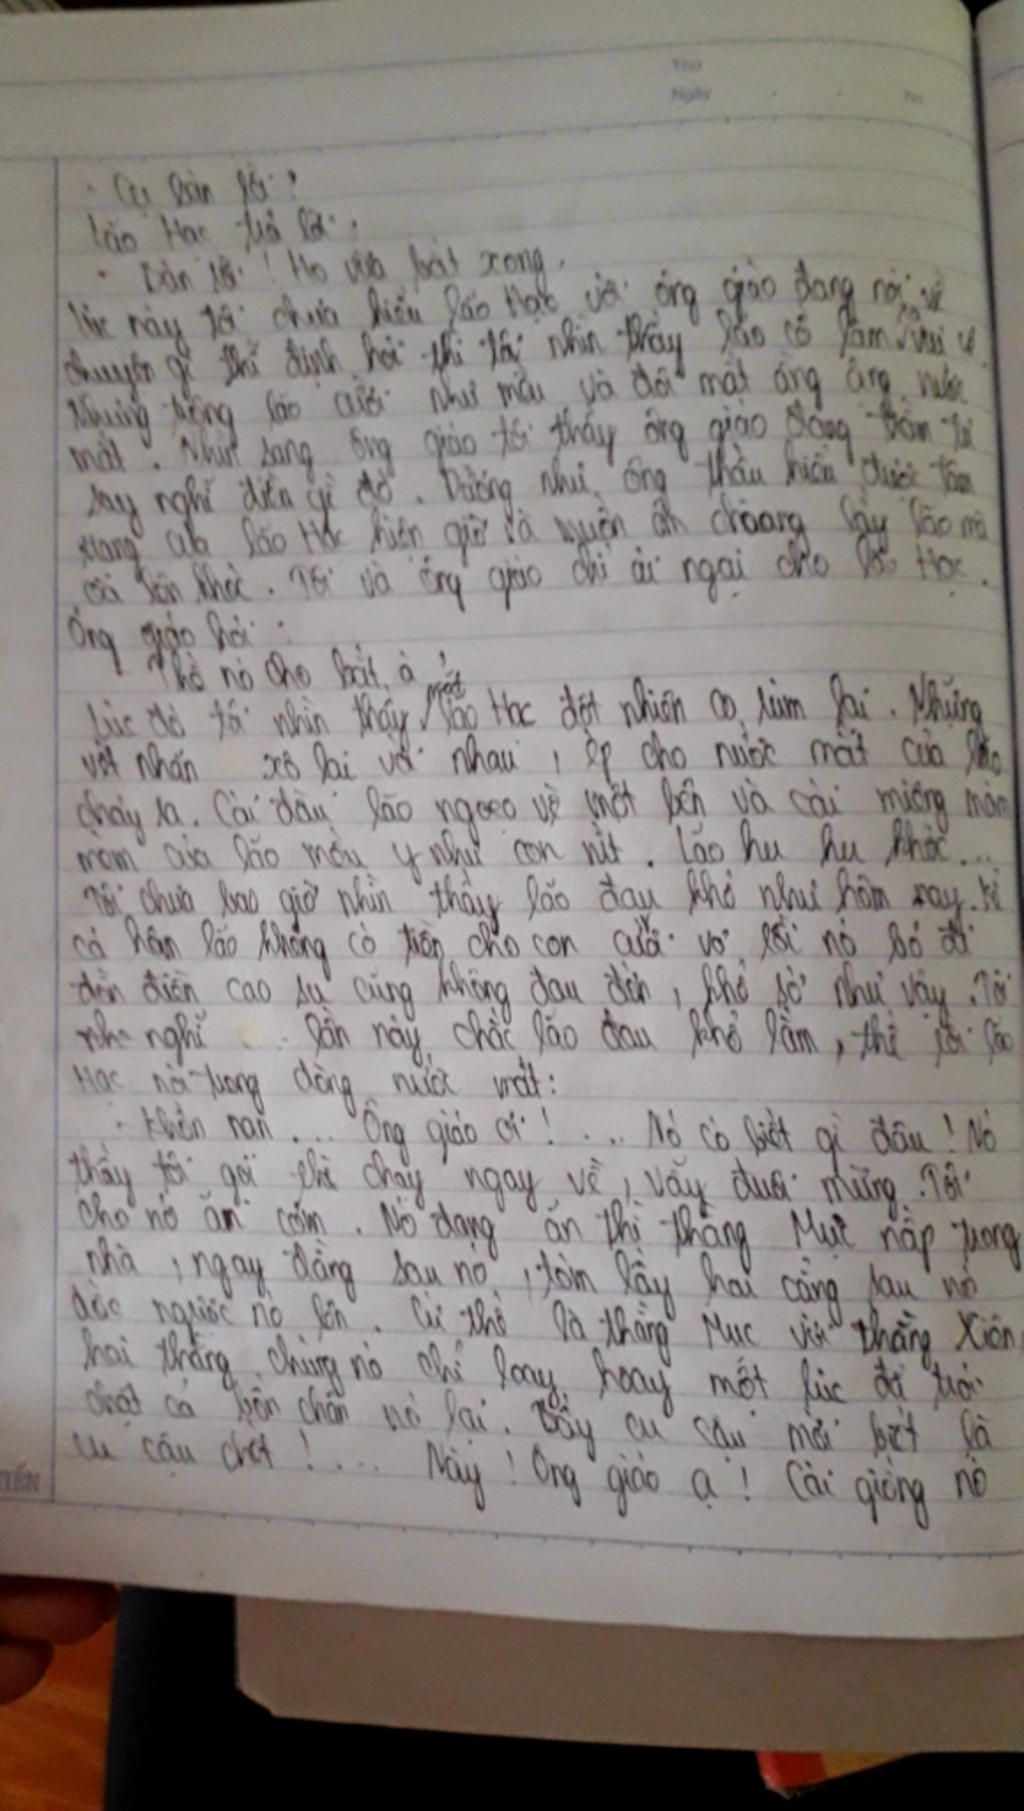 Thứ
Ngày No
- Cụ bán rồi?
Lão Hạc trả lời:
- Bán rồi! Họ vừa bắt xong.
Lúc này tôi chưa hiểu lão Hạc với ông giáo đang nói về
chuyện gì thì định hỏi thì tôi nhìn thấy lão cố làm ra vui vẻ.
Nhưng trông lão cười như mếu và đôi mắt ầng ậng nước
mắt. Nhìn sang ông giáo tôi thấy ông giáo đang trầm tư
suy nghĩ điều gì đó. Dường như ông thấu hiểu được tâm
trạng của lão Hạc hiện giờ và muốn ôm choàng lấy lão mà
òa lên khóc. Tôi và ông giáo chỉ ái ngại cho lão Hạc.
Ông giáo hỏi:
- Thế nó cho bắt à?
Lúc đó tôi nhìn thấy mặt lão Hạc đột nhiên co rúm lại. Những
vết nhăn xô lại với nhau, ép cho nước mắt của lão
chảy ra. Cái đầu lão ngoẹo về một bên và cái miệng móm
mém của lão mếu y như con nít. Lão hu hu khóc...
Tôi chưa bao giờ nhìn thấy lão đau khổ như hôm nay. Kể
cả hôm lão không có tiền cho con cưới vợ rồi nó bỏ đi
đồn điền cao su cũng không đau đớn, khổ sở như vậy. Tôi
nghĩ lần này chắc lão đau khổ lắm, thế rồi lão
Hạc nói trong dòng nước mắt:
- Khốn nạn.... Ông giáo ơi!.... Nó có biết gì đâu! Nó
thấy tôi gọi thì chạy ngay về, vẫy đuôi mừng. Tôi
cho nó ăn cơm. Nó đang ăn thì thằng Mục nấp trong
nhà, ngay đằng sau nó, tóm lấy hai cẳng sau nó
dốc ngược nó lên. Cứ thế là thằng Mục với thằng Xiên,
hai thằng chúng nó chỉ loay hoay một lúc đã trói
chặt cả bốn chân nó lại. Bấy cu cậu mới biết là
cu cậu chết!.... Này! Ông giáo ạ! Cái giống nó